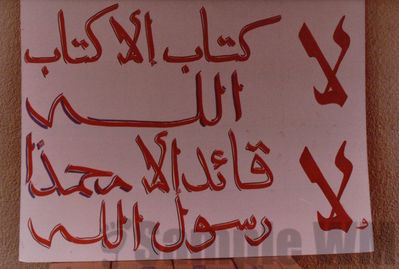 لا كتاب إلا كتاب
الله
لا قائد إلا محمدًا
رسول الله
Sample